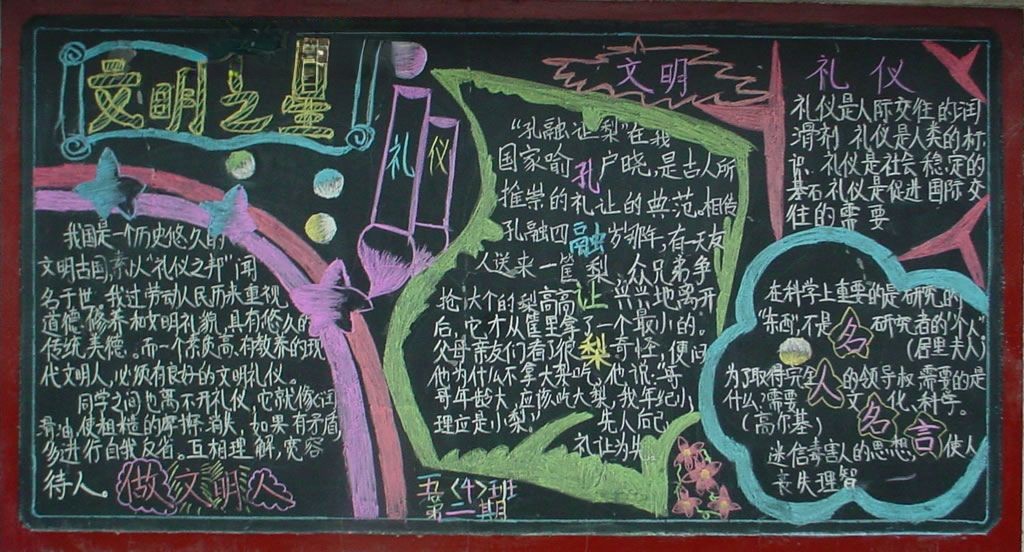 文明之星
我国是一个历史悠久的
文明古国,素以“礼仪之邦”闻
名于世。我过劳动人民历来重视
道德修养和文明礼貌,具有悠久的
传统美德。而一个素质高,有教养的现
代文明人,必须有良好的文明礼仪。
同学之间也离不开礼仪,它就像润
滑油,使粗糙的摩擦消失,如果有矛盾
多进行自我反省。互相理解,宽容
待人。
做文明人
礼仪
五<4>班
第二期
文明
“孔融让梨”在我
国家喻户晓,是古人所
推崇的礼让的典范。相传
孔融四岁那年,有一天友
人送来一筐梨,众兄弟争
抢大个的梨高高兴兴地离开
后,它才从筐里拿了一个最小的。
父母亲友们看了很奇怪,便问
他为什么不拿大梨吃,他说,哥
哥年龄大,应该吃大梨,我年纪小
理应是小梨。先人后己,
礼让为先
孔融让梨
礼仪
礼仪是人际交往的润
滑剂 礼仪是人类的标
识、礼仪是社会稳定的
基石,礼仪是促进国际交
往的需要
在科学上重要的是研究的
“东西”,不是研究者的“个人”
(居里夫人)
为了取得完全的领导权,需要的是
什么?需要文化、科学。
(高尔基)
迷信毒害人的思想,使人
丧失理智
名人名言